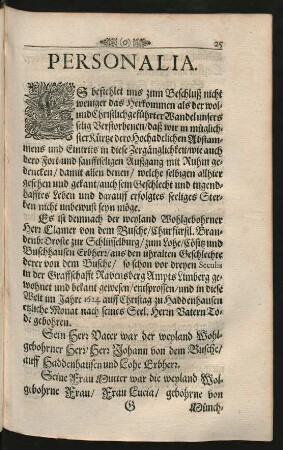 (o) 25
PERSONALIA.
ES befiehlet uns zum Beschluß nicht
weniger das Herkommen als der wol-
und Christlichgeführter Wandel unsers
selig Verstorbenen/ daß wir in müglich-
ster Kürtze dero Hochadelichen Abstam-
mens und Eintrits in diese Zergänglichkeit/ wie auch
dero Fort- und sanfftseligen Außgang mit Ruhm ge-
dencken/ damit allen denen/ welche selbigen allhier
gesehen und gekant/ auch sein Geschlecht und tugend-
hafftes Leben und darauf erfolgtes seeliges Ster-
ben nicht unbewust seyn möge.
Es ist demnach der weyland Wohlgebohrner
Herr Clamer von dem Busche/ Churfürstl. Branden-
denb: Droste zur Schlüsselburg/ zum Lohe/ Cösitz und
Buschhausen Erbherr/ aus den uhralten Geschlechte
derer von dem Busche/ so schon vor dreyen Seculis
in der Graffschafft Ravensberg Ampts Limberg ge-
wohnet und bekant gewesen/ entsprossen/ und in diese
Welt im Jahre 1624. auff Christag zu Haddenhausen
etzliche Monat nach seines Seel. Herrn Vatern To-
de gebohren.
Sein Herr Vater war der weyland Wohl-
gebohrner Herr/ Herr Johann von dem Busche/
auff Haddenhausen und Lohe Erbherr.
Seine Frau Mutter war die weyland Wol-
gebohrne Frau/ Frau Lucia/ gebohrne von
G Münch-